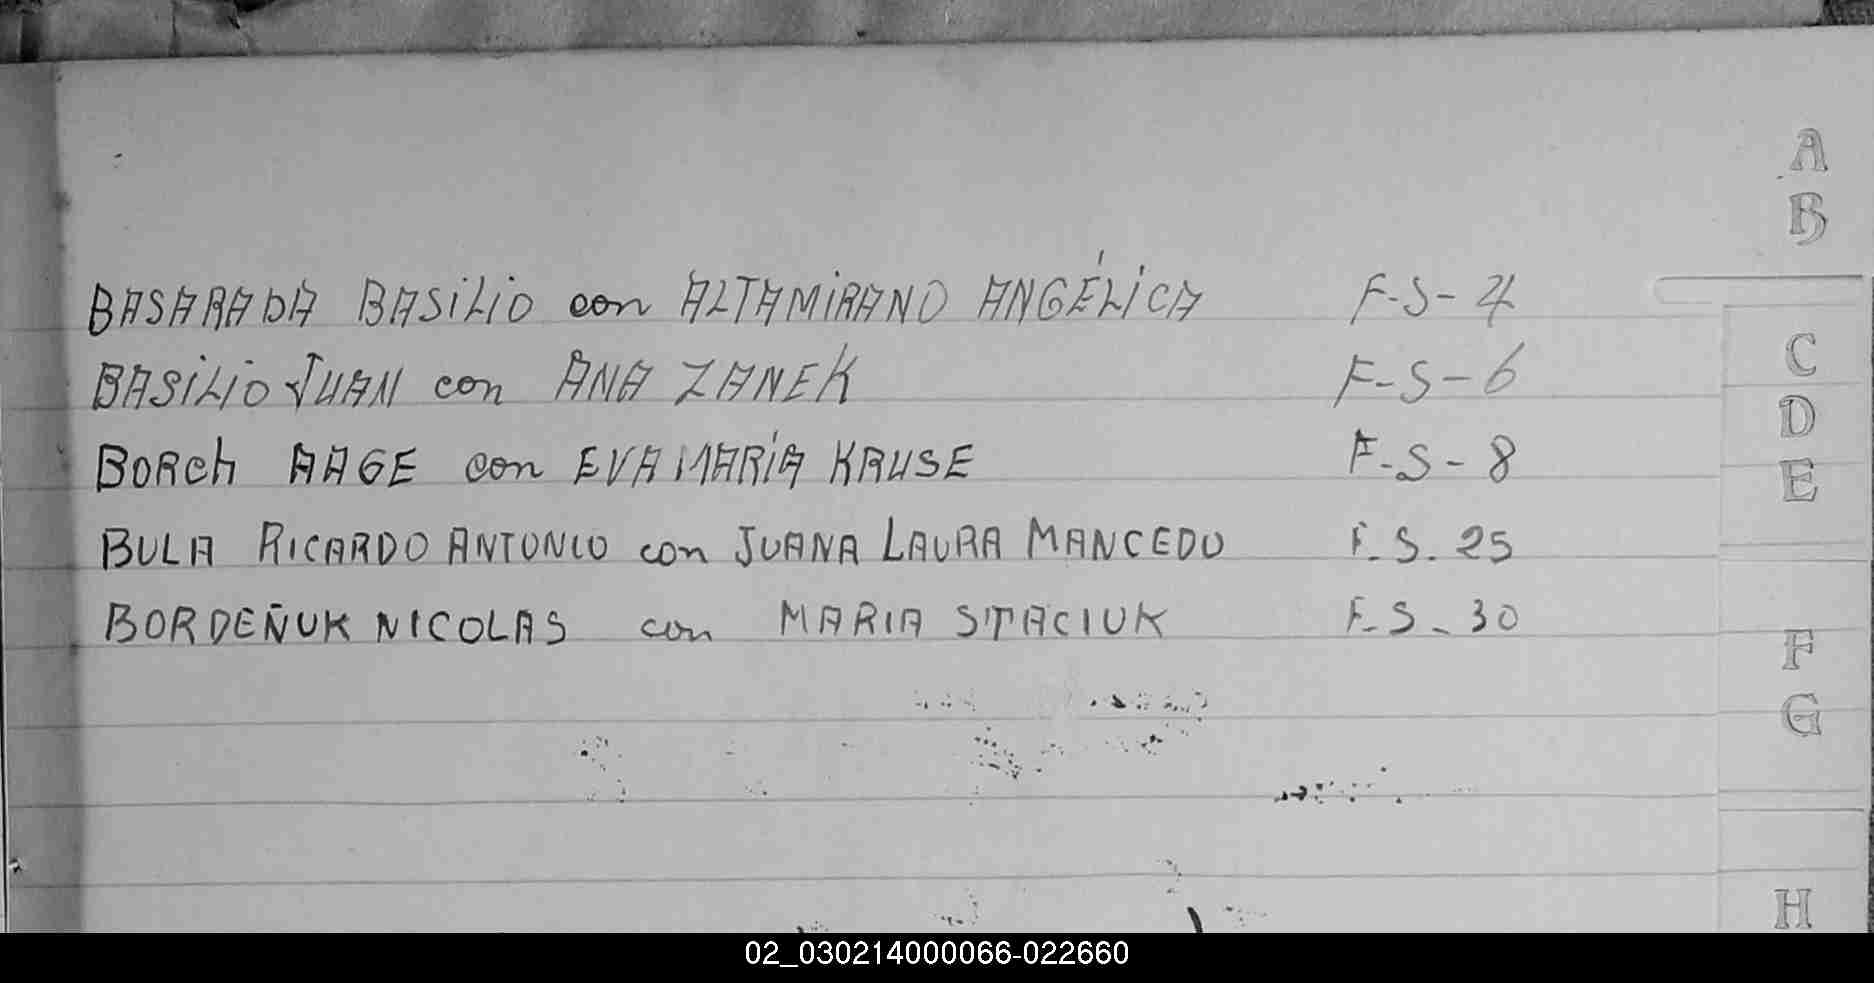 BASARADA BASILIO con ALTAMIRANO ANGÉLICA F-S-4
BASILIO JUAN con ANA ZANEK F-S-6
BORCh AAGE con EVA MARÍA KRUSE F-S-8
BULA RICARDO ANTONIO con JUANA LAURA MANCEDO F.S.25
BORDEÑUK NICOLAS con MARIA STACIUK F.S-30
A
B
C
D
E
F
G
H
02_030214000066-022660